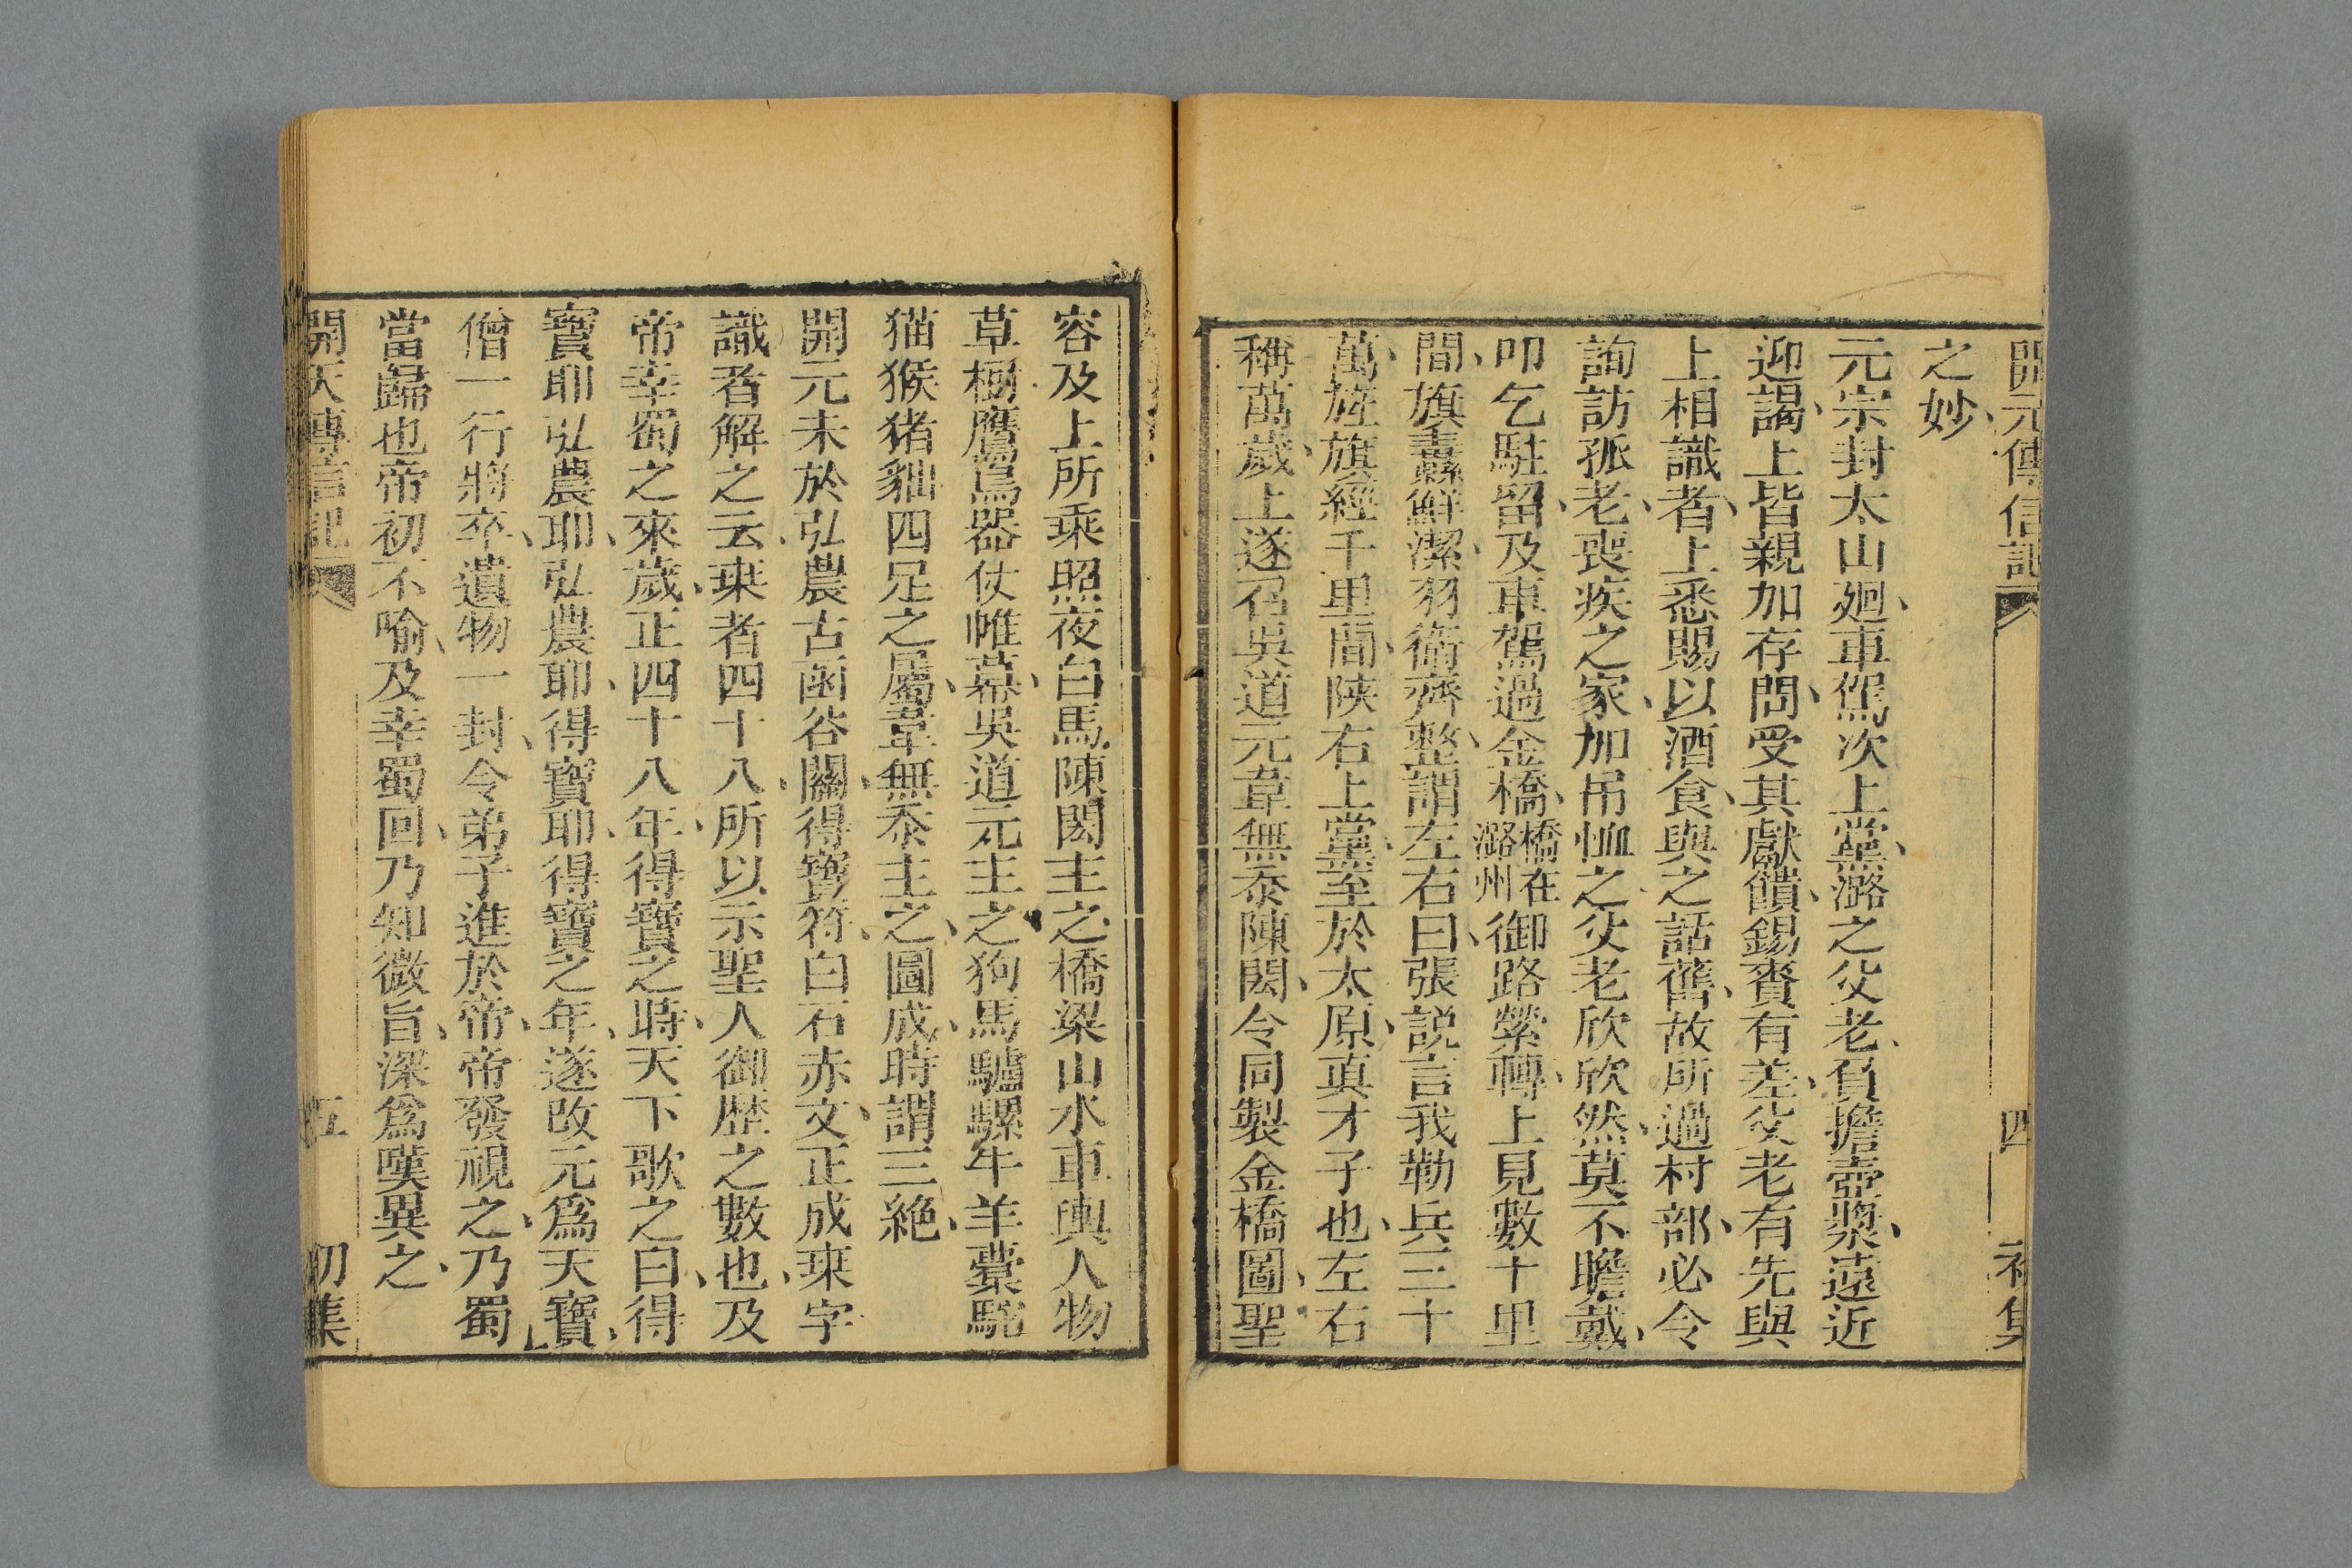 開元傳信記 四 初集
之妙
元宗封太山廻車駕次上黨潞之父老負擔壺漿遠近
迎謁上皆親加存問受其獻饋錫賚有差父老有先與
上相識者上悉賜以酒食與之話舊故所過村部必令
詢訪孤老喪疾之家加吊恤之父老欣欣然莫不瞻戴
叩乞駐留及車駕過金橋橋在潞州御路縈轉上見數十里
間旗纛鮮潔羽衞齊整謂左右曰張説言我勒兵三十
萬旌旗經千里間陝右上黨至於太原真才子也左右
稱萬歲上遂召吳道元韋無忝陳閎令同製金橋圖聖
容及上所乘照夜白馬陳閎主之橋梁山水車輿人物
草樹鷹鳥器仗帷幕吳道元主之狗馬驢騾牛羊橐駝
猫猴猪貀四足之屬韋無忝主之圖成時謂三絶
開元末於弘農古函谷關得寶符白石赤文正成桒字
識者解之云桒者四十八所以示聖人御歴之數也及
帝幸蜀之來歲正四十八年得寶之時天下歌之曰得
寶耶弘農耶弘農耶得寶耶得寶之年遂改元爲天寶
僧一行將卒遺物一封令弟子進於帝帝發視之乃蜀
當歸也帝初不喻及幸蜀回乃知微旨深爲嘆異之
開天傳信記 五 初集